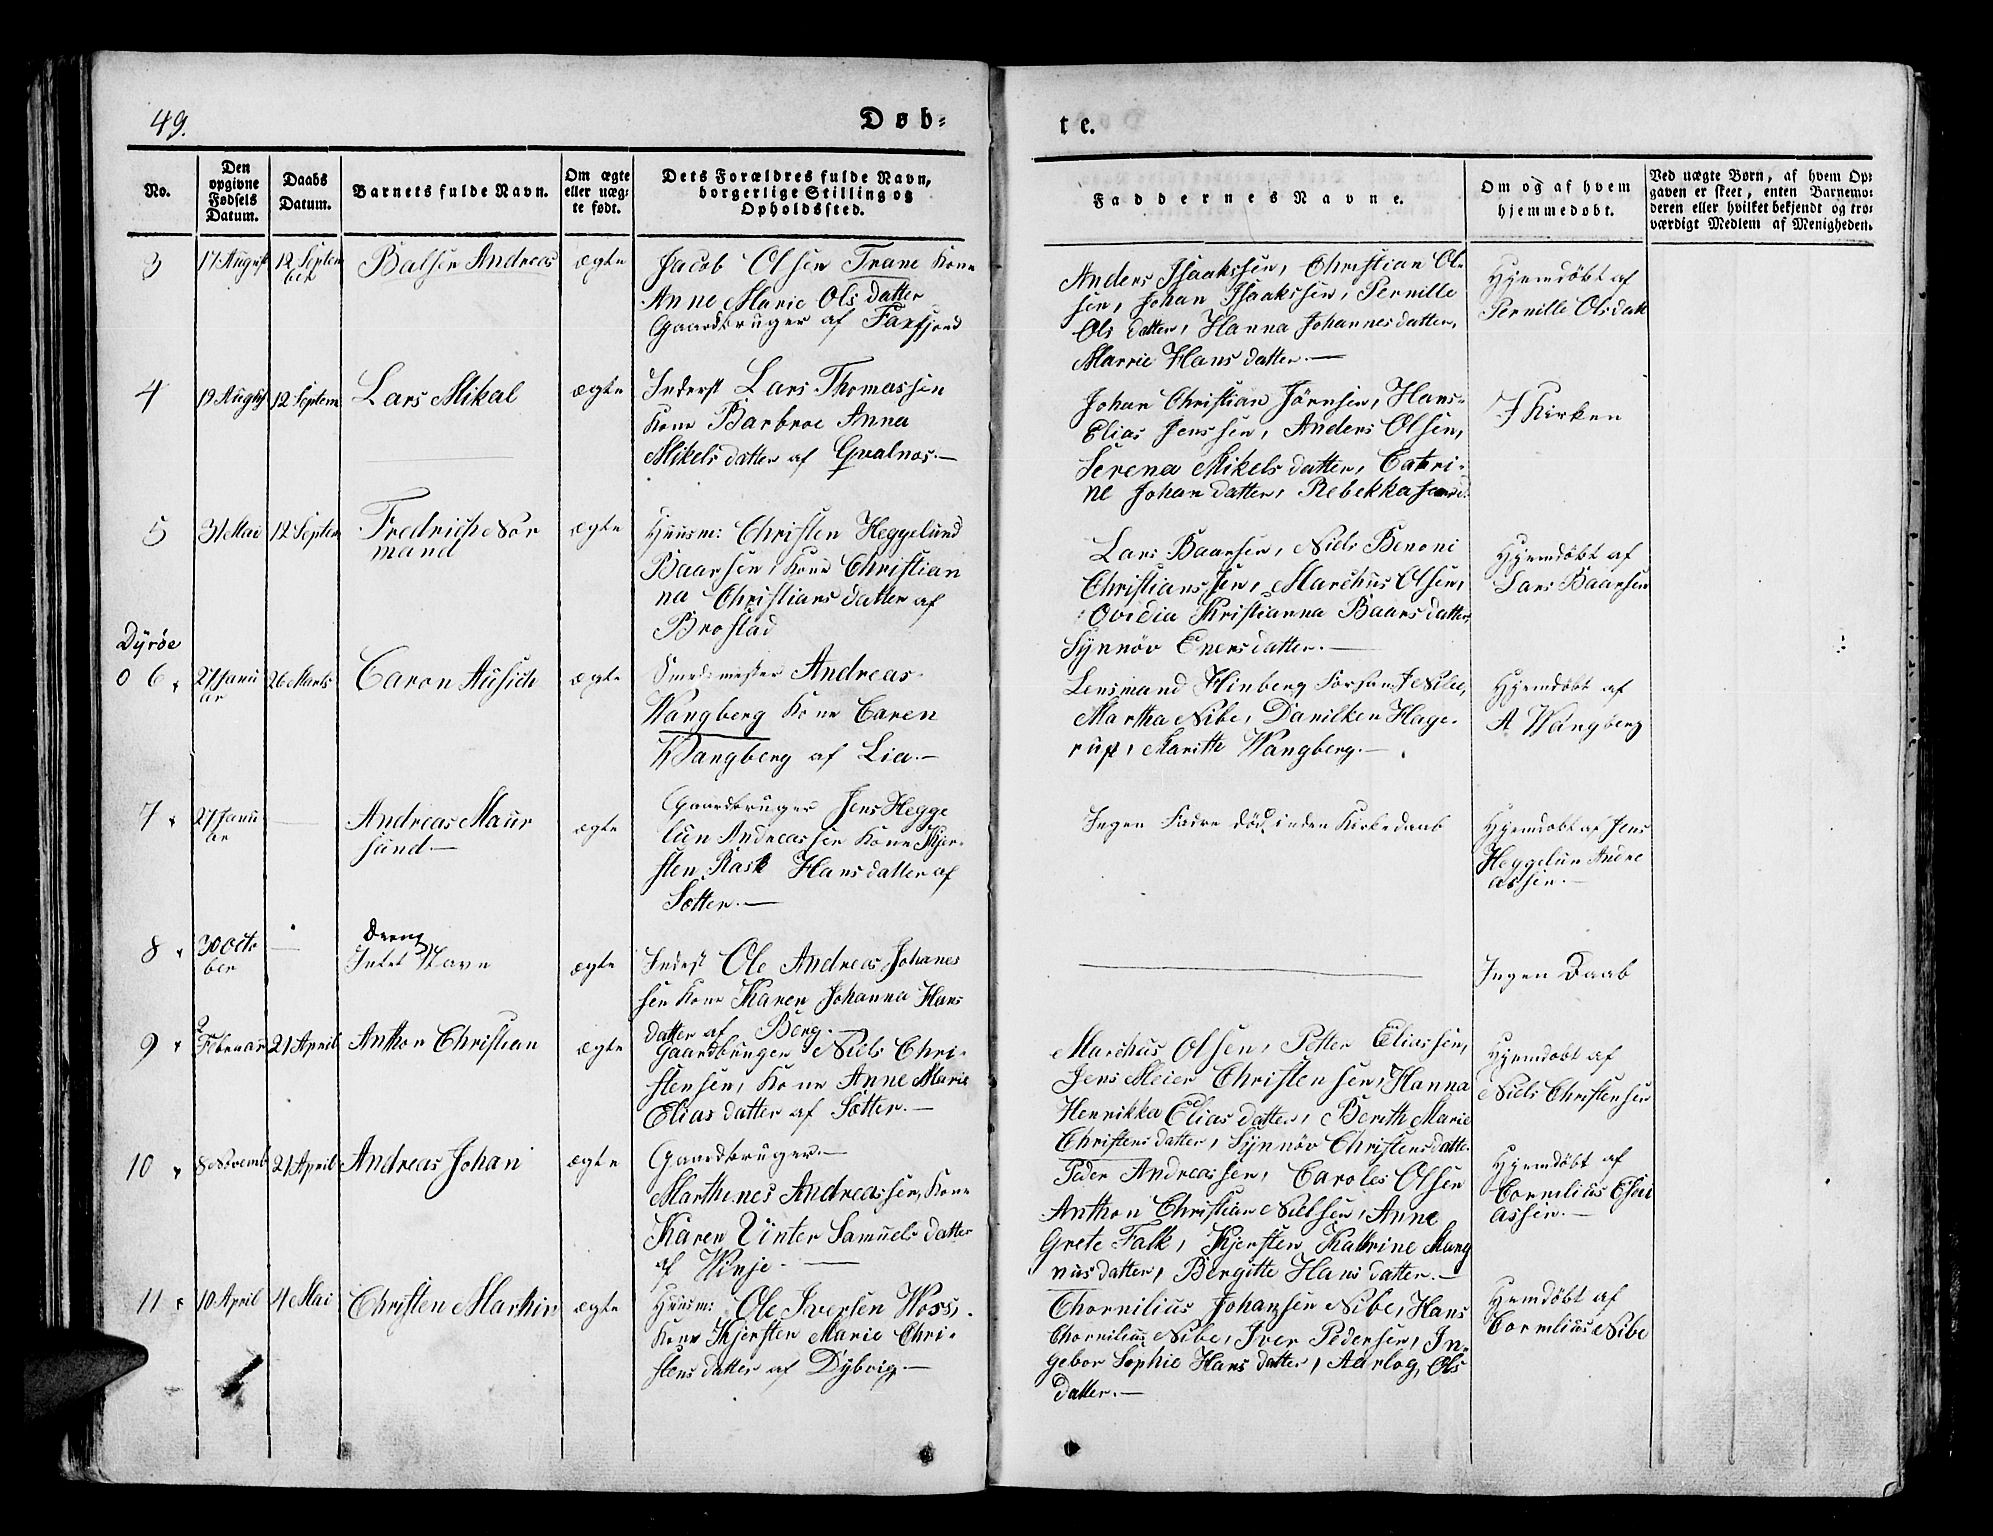 49.
Døb-
te.
No.
Den opgivne Fødsels Datum.
Daabs Datum.
Barnets fulde Navn.
Om ægte eller uægte født.
Dets Forældres fulde Navn, borgerlige Stilling og Opholdssted.
Faddernes Navne.
Om og af hvem hjemmedøbt.
Ved uægte Børn, af hvem Op-
gaven er skeet, enten Barnemo-
deren eller hvilket bekjendt og tro-
værdigt Medlem af Menigheden.
3 17 August 12 Septem
ber
Balser Andreas
ægte
Jacob Olsen Trane Kone
Anne Marie Olsdatter
Gaardbruger af Faxfjord
Anders Isaakssen, Christian Ol-
sen, Johan Isaakssen, Pernille
Ols datter, Hanna Johannesdatter,
Marrie Hans datter.—
Hjemdøbt af
Pernille Olsdatt
4 19 August 12 Septem
Lars Mikal
ægte
Inderst Lars Thomassen
Kone Barbroe Anna
Mikelsdatter af Qvalnes.—
Johan Christian Jørnsen, Hans-
Elias Jenssen, Anders Olsen,
Serena Mikels datter, Catri-
ne Johan datter, Rebekka
I Kirken
5 31 Mai 12 Septem
Fredrich Nor
mand
ægte
Huusm: Christen Heggelund
Baarsen, Kone Christian
na Christians datter af
Brostad
Lars Baarsen, Niels Benoni
Christianssen, Marchus Olsen,
Ovidia Kristianna Baarsdatter,
Synnøv Enersdatter.—
Hjemdøbt af
Lars Baarsen
Dyrøe
0 6 27 Janu
ar
26 Marts
Caron Ausich
ægte
Smedmester Andreas
Wangberg Kone Caren
Wangberg af Lia.—
Lensmand Hinberg
Martha Nibe, Danilken Hage-
rup, Maritte Wangberg.—
Hjemdøbt af
A Wangberg
7 27 Janu
ar
—
Andreas Maur
sund.—
ægte
Gaardbruger Jens Hegge
lun Andreassen Kone Kjer-
sten Rask Hansdatter af
Søtter.—
Ingen Fadre død inden Kirkedaab
Hjemdøbt af Jens
Heggelun Andre
assen.—
8 30 Octo
ber
—
Dreng
Intet Navn
ægte
Inderst Ole Andreas Johanes
sen Kone Karen Johanna Hans
datter af Berg.—
Ingen Daab
9 2
Februar 21 April
Anthon Christian
ægte
Gaardbruger Niels Chri-
stensen, Kone Anne Marie
Elias datter af Søtter.—
Marchus Olsen, Petter Eliassen,
Jens Meier Christensen, Hanna
Henrikka Elias datter, Berith Marie
Christens datter, Synnøv Christensdatte
Hjemdøbt af
Niels Christensen
10 8 Novemb 21 April
Andreas Johan
ægte
Gaardbruger.—
Marthenes Andreassen, Kone
Karen Winter Samuels datter
af Winje.—
Peder Andreassen, Caroles Olsen
Anthon Christian Nielsen, Anne
Grete Falk, Kjersten Kathrine Mang
nus datter, Birgitte Hans datter.—
Hjemdøbt af
Cornilius Elisi
assen.—
11 10 April 4 Mai
Christen Martin
ægte
Huusm: Ole Iversen Woss,
Kone Kjersten Marie Chri-
stens datter af Dybvig.—
Chornilius Johansen Nibe, Hans
Chornilius Nibe, Iver Pedersen, In-
gebor Sophie Hans datter, Aarlog, Ols
datter.—
Hjemdøbt af
Cornilius Nibe